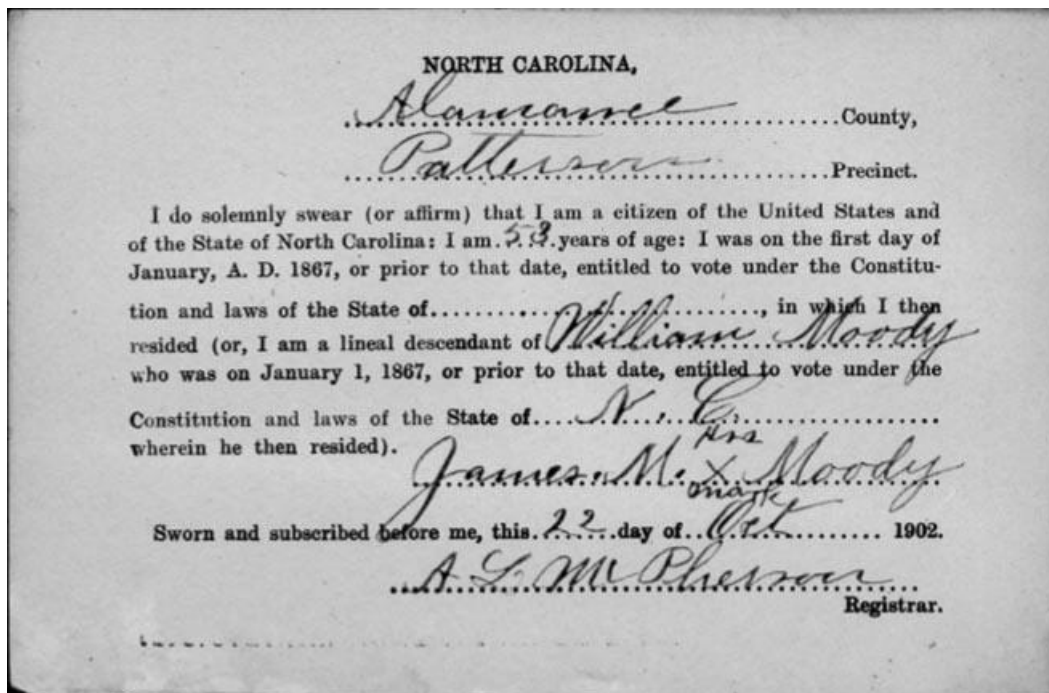 NORTH CAROLINA,
Alamance County,
Patterson Precinct.
I do solemnly swear (or affirm) that I am a citizen of the United States and
of the State of North Carolina: I am 53 years of age: I was on the first day of
January, A. D. 1867, or prior to that date, entitled to vote under the Constitu-
tion and laws of the State of ...................., in which I then
resided (or, I am a lineal descendant of William Moody
who was on January 1, 1867, or prior to that date, entitled to vote under the
Constitution and laws of the State of N. C.
wherein he then resided).
his
James. M. X Moody
mark
Sworn and subscribed before me, this 22 day of Oct 1902.
A L McPherson
Registrar.